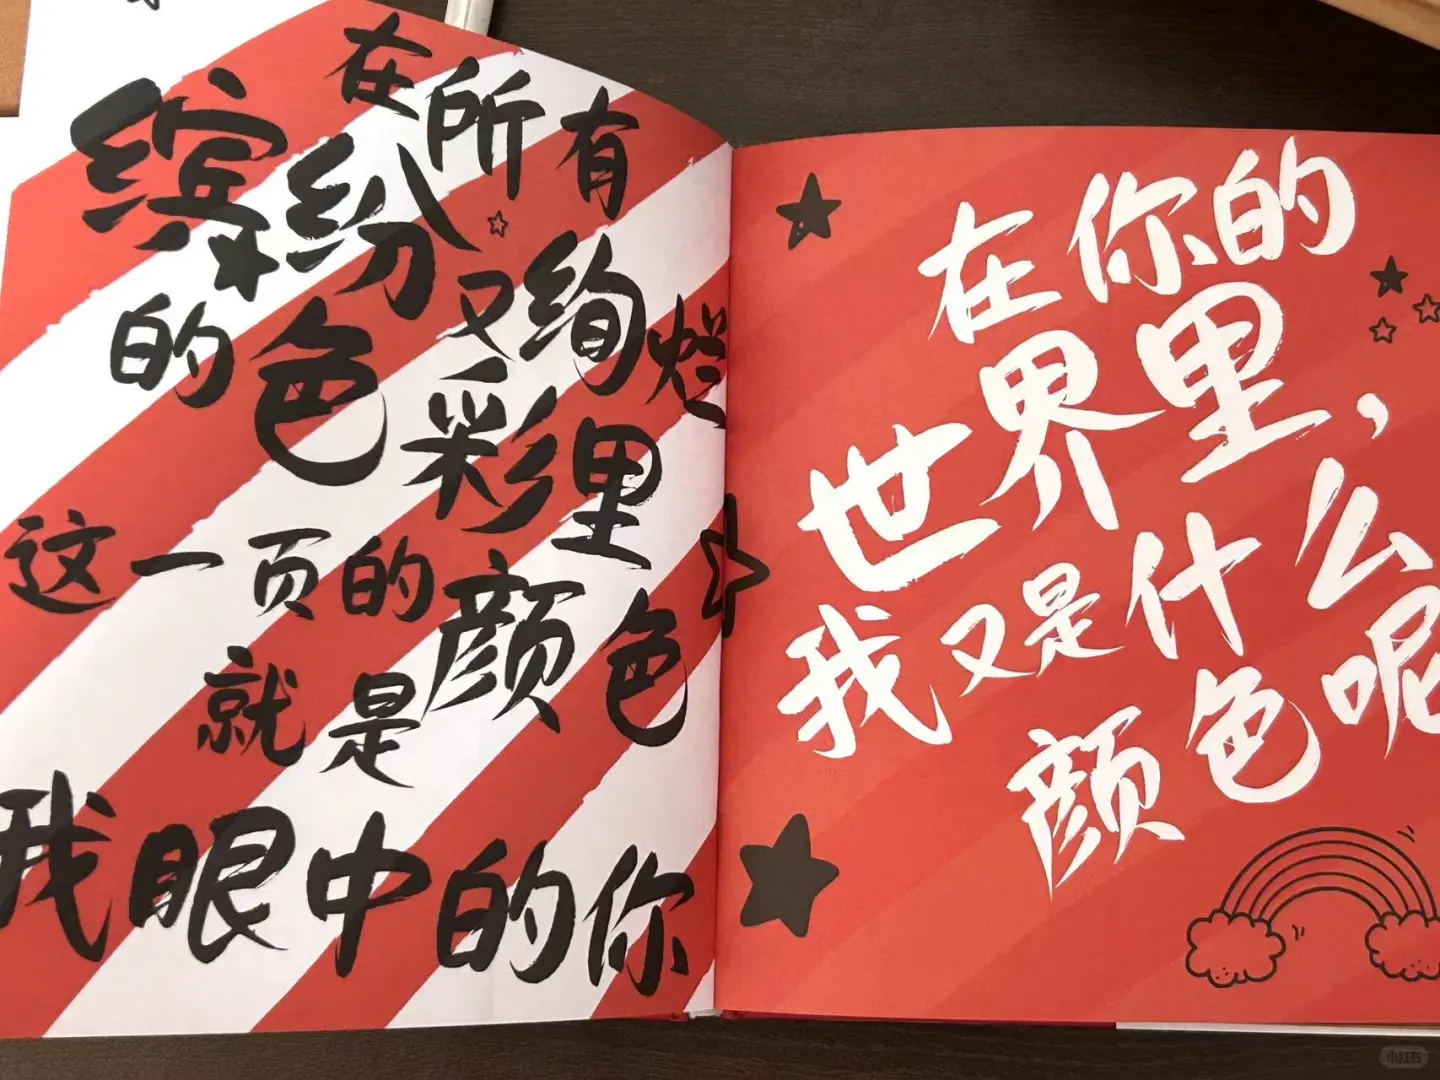 在所有
缤纷又绚烂
的色彩里
这一页的颜色
就是
我眼中的你
在你的
世界里，
我又是什么
颜色呢
小红书